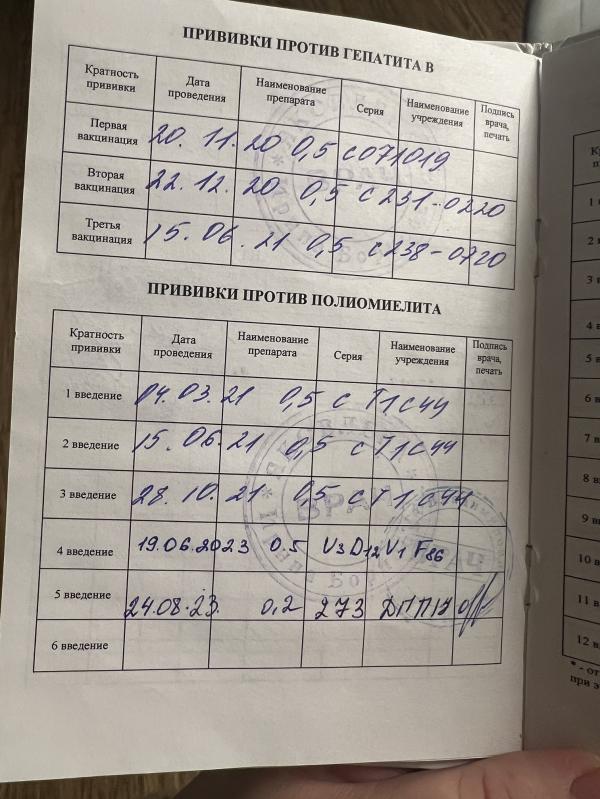 ПРИВИВКИ ПРОТИВ ГЕПАТИТА В
Кратность прививки Дата проведения Наименование препарата Серия Наименование учреждения Подпись врача, печать
Первая вакцинация 20. 11. 20 0,5 с 071019
Вторая вакцинация 22. 12. 20 0,5 с 231-0220
Третья вакцинация 15. 06. 21 0,5 с 238-0720
ПРИВИВКИ ПРОТИВ ПОЛИОМИЕЛИТА
Кратность прививки Дата проведения Наименование препарата Серия Наименование учреждения Подпись врача, печать
1 введение 04. 03. 21 0,5 с T1C44
2 введение 15. 06. 21 0,5 с T1C44
3 введение 28. 10. 21 0,5 с T1C44
4 введение 19.06.2023 0.5 U3D12V1F86
5 введение 24.08.23. 0,2 273
6 введение
ВРАЧ
1
2 в
3 в
4 в
5 в
6 в
7 в
8 в
9 в
10 в
11 в
12 в
* - от
при э